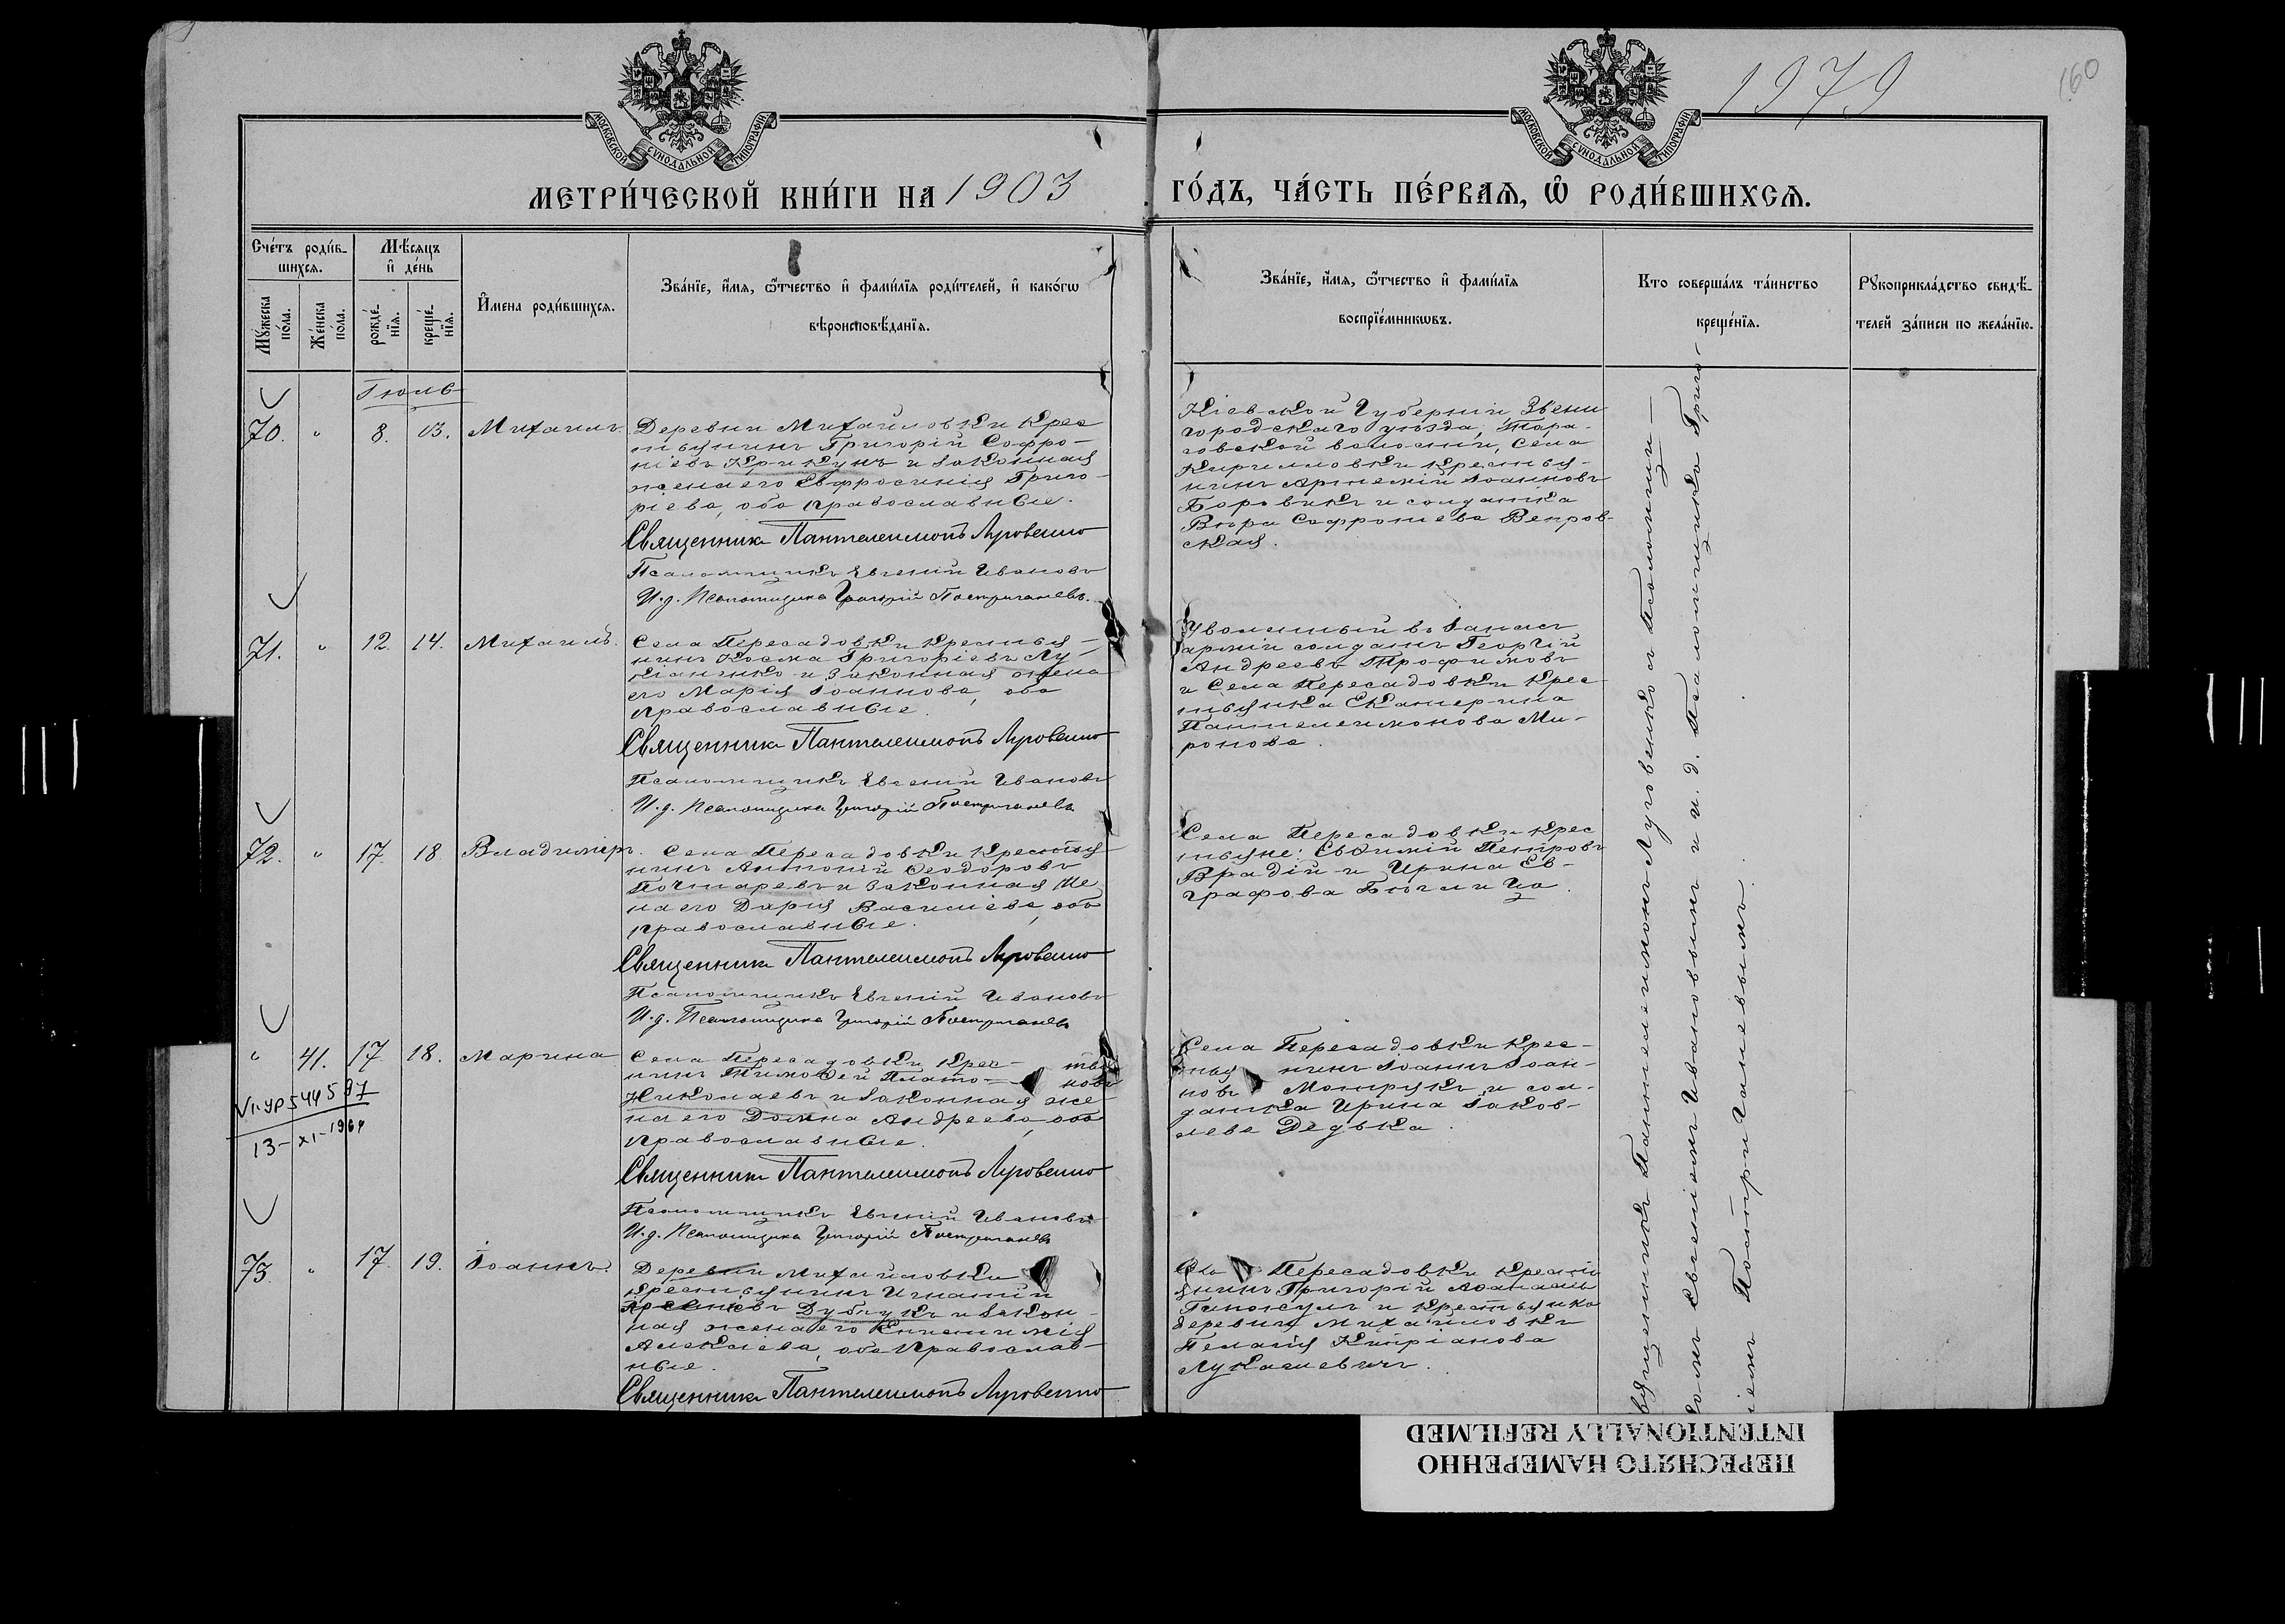 1979
160
МОСКОВСКОЙ СѴНОДАЛЬНОЙ ТИПОГРАФІИ
МОСКОВСКОЙ СѴНОДАЛЬНОЙ ТИПОГРАФІИ
МЕТРИ́ЧЕСКОЙ КНИ́ГИ НА 1903
ГО́ДЪ, ЧА́СТЬ ПЕ́РВАѦ, Ѽ РОДИ́ВШИХСѦ.
Сче́тъ роди́в-
шихсѧ.
Мꙋ́жеска
по́ла.
Же́нска
по́ла.
Мѣ́сѧцъ
и҆ де́нь
рожде́-
нїѧ.
креще́-
нїѧ.
И҆мена роди́вшихсѧ.
Зва́нїе, и҆́мѧ, ѻ҆́тчество и҆ фами́лїѧ роди́телей, и҆ како́гѡ
вѣроисповѣ́данїѧ.
Зва́нїе, и҆́мѧ, ѻ҆́тчество и҆ фами́лїѧ
воспрїе́мникѡвъ.
Кто соверша́лъ та́инство
креще́нїѧ.
Рꙋкоприкла́дство свидѣ́-
телей за́писи по жела́нїю.
Іюль
70. " 8. 13. Михаилъ.
Деревни Михайловки крес
тьянинъ Григорій Софро-
ніевъ Крикунъ и законная
жена его Евфросинія Григо-
ріева, оба православные.
Священникъ Пантелеимонъ Луговенко
Псаломщикъ Евгеній Ивановъ
И. д. Псаломщика Григорій Пострыганевъ.
Кіевской Губерніи, Звени
городскаго уѣзда, Тара-
совской волости, села
Кирилловки крестья-
нинъ Артемій Іоанновъ
Боровикъ и солдатка
Вѣра Софроніева Вепров-
ская.
71. " 12. 14. Михаилъ.
Села Пересадовки крестья-
нинъ Косма Григоріевъ Лу-
кіаненко и законная жена
его Марія Іоаннова, оба
православные.
Священникъ Пантелеимонъ Луговенко
Псаломщикъ Евгеній Ивановъ
И. д. Псаломщика Григорій Пострыганевъ
Уволенный въ запасъ
арміи солдатъ Георгій
Андреевъ Трофимовъ
и села Пересадовки крес
тьянка Екатерина
Пантелеимонова Ми-
ронова.
72. " 17. 18 Владиміръ.
Села Пересадовки крестья
нинъ Антоній Ѳеодоровъ
Почтаревъ и законная же
на его Дарія Василіева, оба
православные.
Священникъ Пантелеимонъ Луговенко
Псаломщикъ Евгеній Ивановъ
И. д. Псаломщика Григорій Пострыганевъ
Села Пересадовки крес
тьяне: Евѳимій Петровъ
Врадій и Ирина Ев-
графова
" 41. 17. 18. Марина
544597
13-XI-1964
Села Пересадовки крес- тья
нинъ Тимоѳей Плато- новъ
Николаевъ и законная же-
на его Домна Андреева, оба
православные.
Священникъ Пантелеимонъ Луговенко
Псаломщикъ Евгеній Ивановъ
И. д. Псаломщика Григорій Пострыганевъ
Села Пересадовки крес-
тья нинъ Іоаннъ Іоан-
новъ Мотрукъ и сол-
датка Ирина Іаков-
лева Дедька.
73. " 17. 19. Іоаннъ.
Деревни Михайловки
крестьянинъ Игнатій
Арсеніевъ Дубчукъ и закон-
ная жена его Епистимія
Алексіева, оба православ-
ные.
Священникъ Пантелеимонъ Луговенко
Села Пересадовки крестья
янинъ Григорій Аѳанасьевъ
и крестьянка
деревни Михайловки
Пелагія Кипріанова
Лукашевичъ.
Священникъ Пантелеимонъ Луговенко съ псаломщи-
комъ Евгеніемъ Ивановымъ и и. д. Псаломщика Григо-
ріемъ Пострыганевымъ.
ПЕРЕСНЯТО НАМЕРЕННО
INTENTIONALLY REFILMED